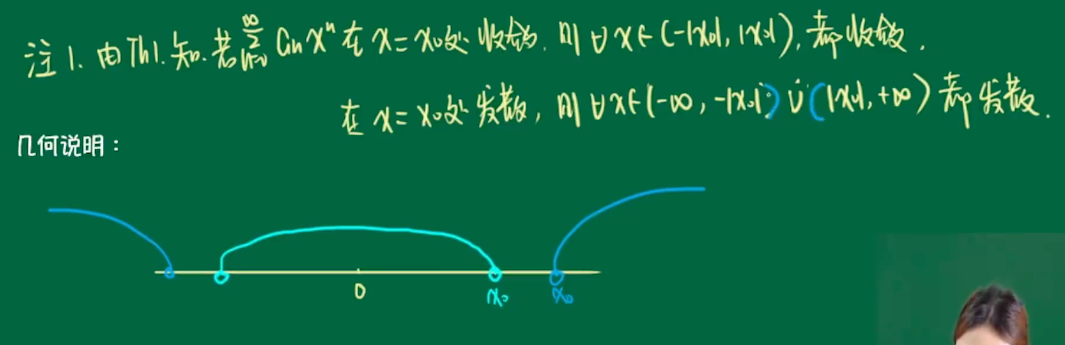 注1. 由Th1.知.若∑_{n=0}^{∞} a_n x^n 在 x=x₀处 收敛, 则 ∀x∈(-|x₀|, |x₀|), 都收敛.
在 x=x₀处 发散, 则 ∀x∈(-∞, -|x₀|) ∪ (|x₀|, +∞) 都发散.
几何说明：
0 x₀ x₀